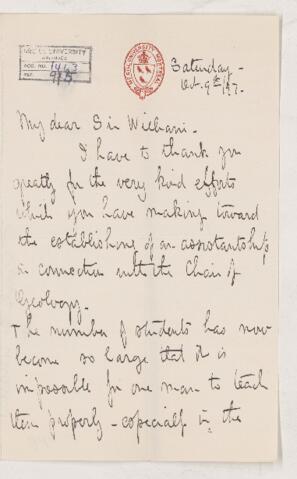 McGILL UNIVERSITY
ARCHIVES
ACC. NO. 1463
REF. 9/5
McGILL UNIVERSITY, MONTREAL
Saturday -
Oct. 9th /97.
My dear Sir William -
I have to thank you
greatly for the very kind efforts
which you have making toward
the establishing of an assistantship
in connection with the Chair of
Geology -
The number of students has now
become so large that it is
impossible for one man to teach
them properly - especially in the